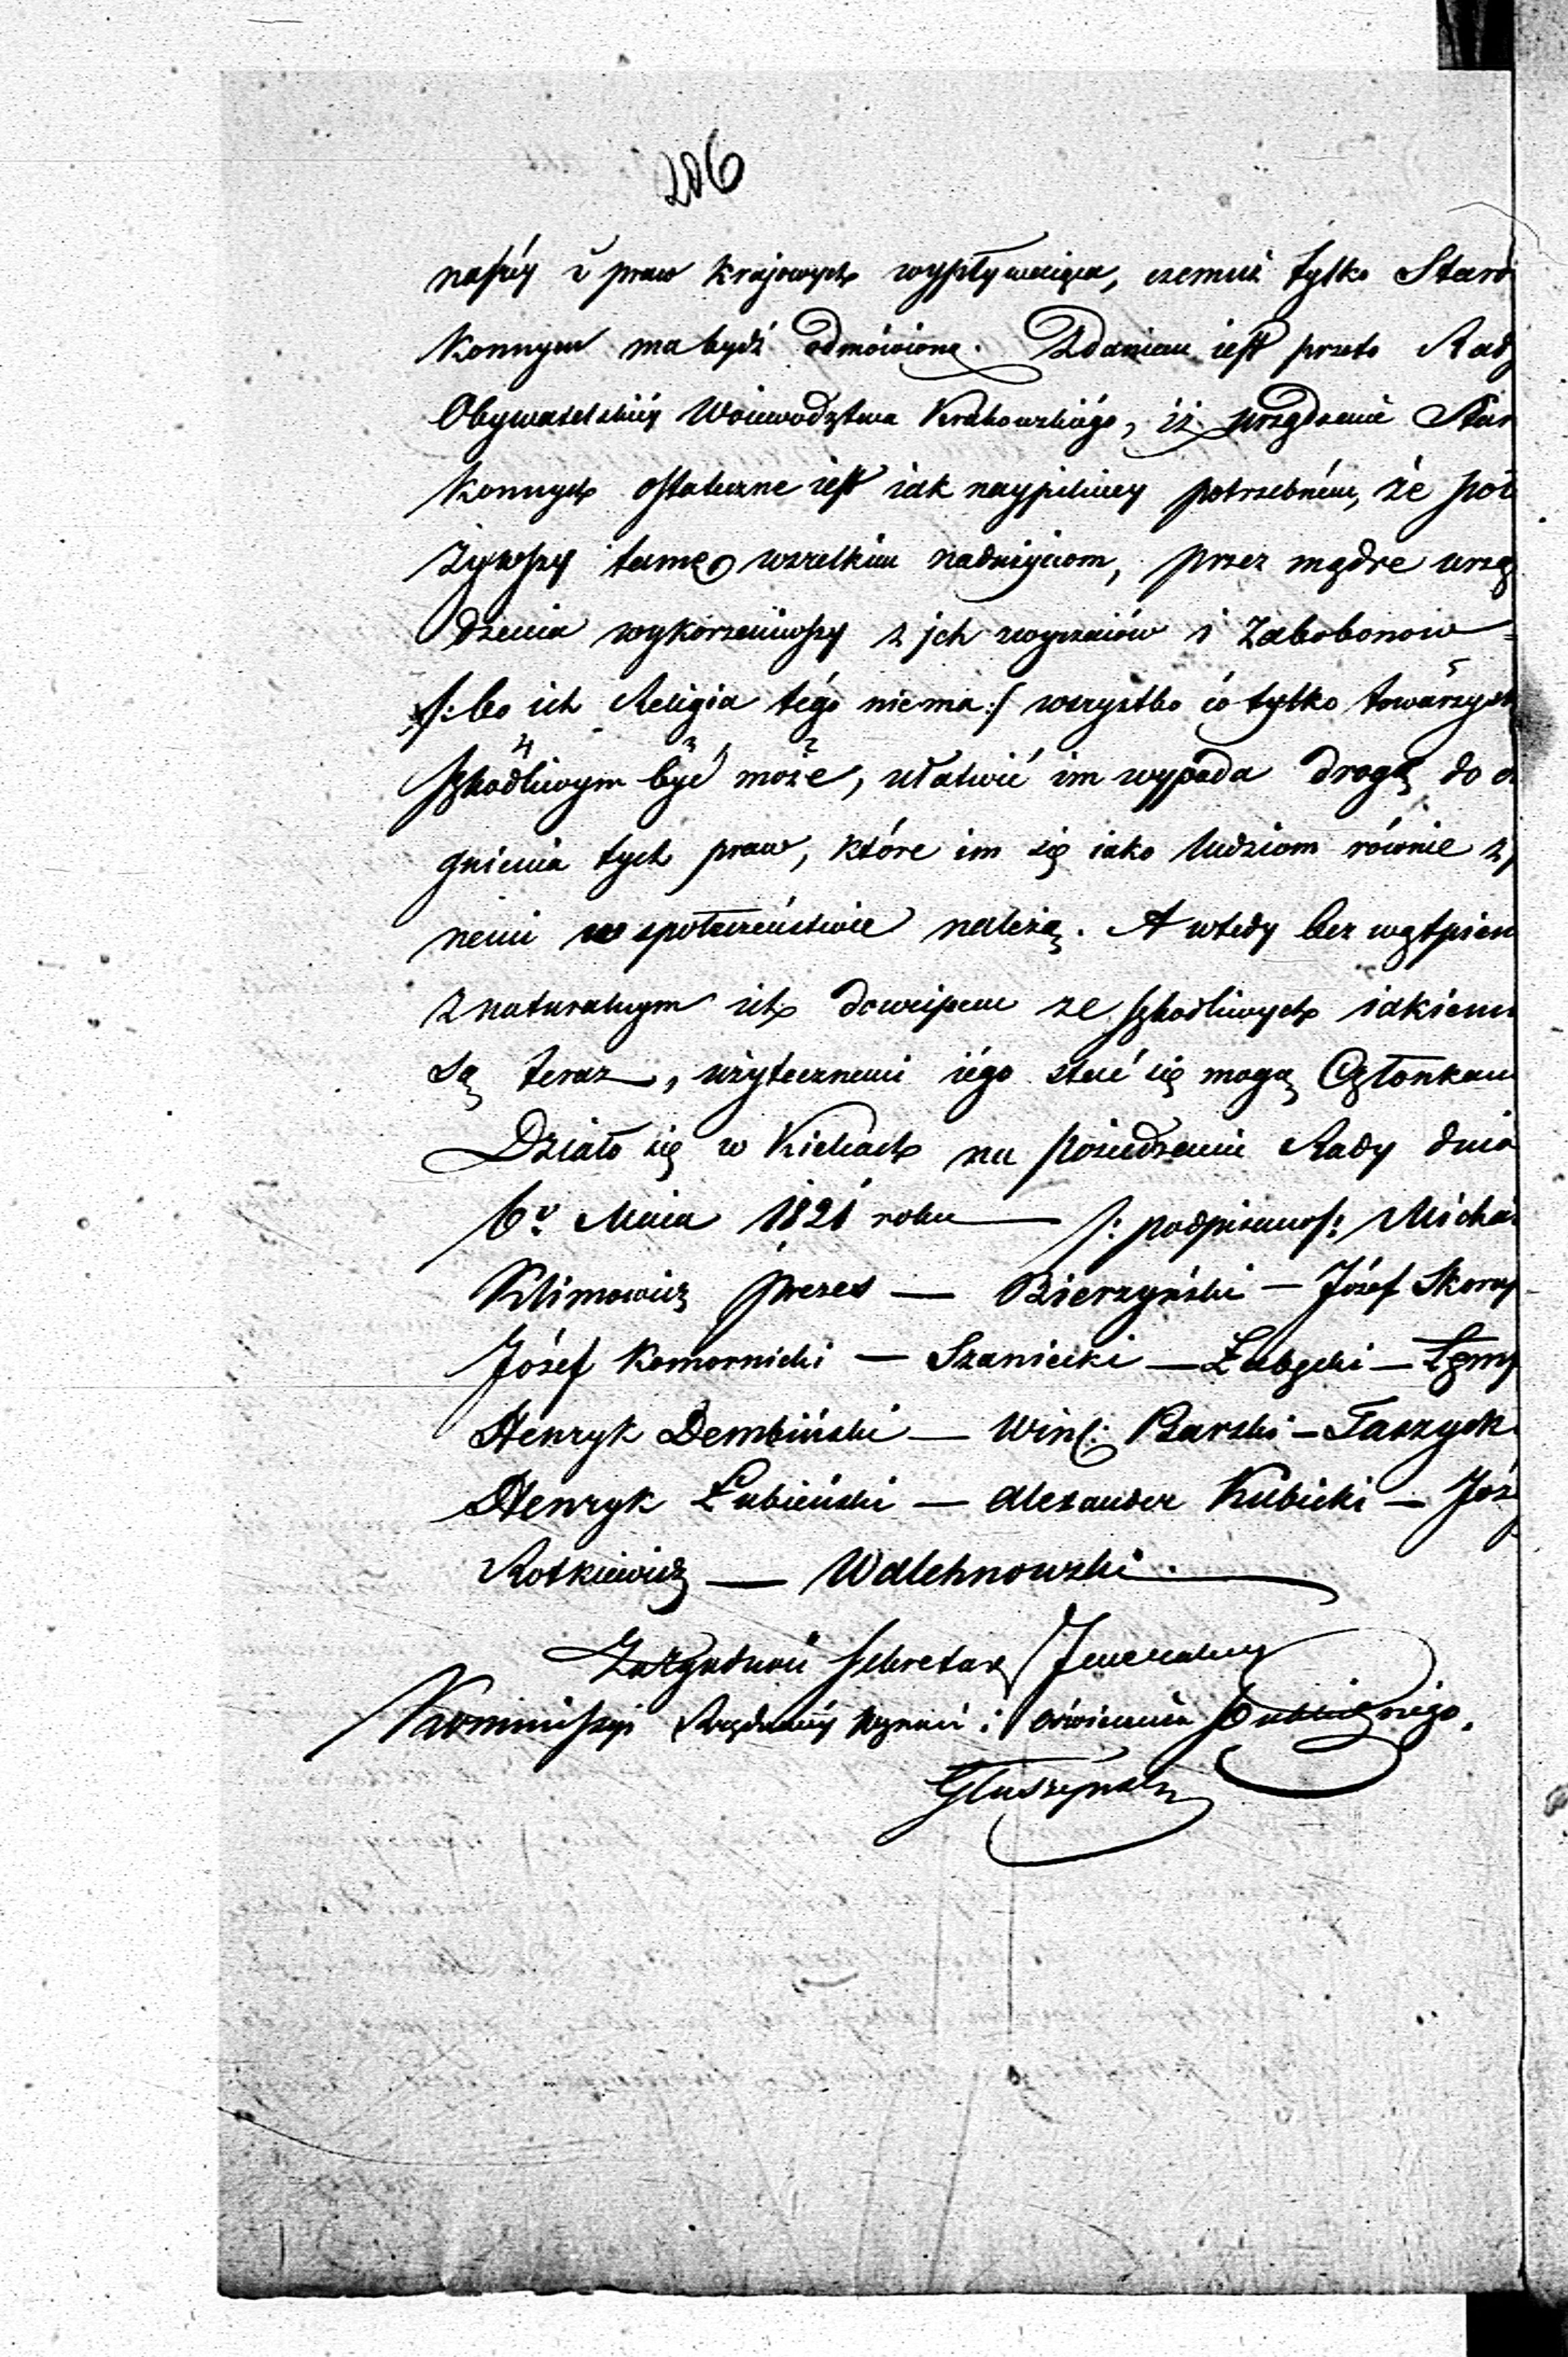 206
naszéy i praw krajowych wypływaiąca, czemuż tylko Staro
konnym ma bydź odmówioną. Zdaniem iest przeto Rady
Obywatelskiéy Woiewodztwa Krakowskiégo, iż urządzenie Star
konnych ostateczne iest iak naypilniey potrzebném, że poło
żywszy tamę wszelkim nadużyciom, przez mądre urzą
dzenia wykorzeniwszy z ich zwyczaiów i zabobonow
/: bo ich Religia tégo nie ma :/ wszystko co tylko towarzyst
szkodliwym być może, ułatwić im wypada drogę do o
gnienia tych praw, które im się iako ludziom równie z
nemi w społeczeństwie należą. A wtedy bez wątpien
z naturalnym ich dowcipem ze szkodliwych iakiemi
są teraz, użytecznemi iégo stać się mogą Członkam
Działo się w Kielcach na posiedzeniu Rady dnia
6º Maia 1821 roku — /: podpisano /: Micha
Klimowicz Prezes — Bierzyński — Józef Skorup
Józef Komornicki — Szaniecki — Łubęcki —
Henryk Dembiński — Winc: Barski — Taszyck
Henryk Łubieński — Alexander Kubicki — Józ
Rotkiewicz — Walchnowski.
Za Zgodność Sekretarz Jeneralny
Kommissyi Rządowéy Wyznań i Oświecenia Publicznego.
Głuszyński